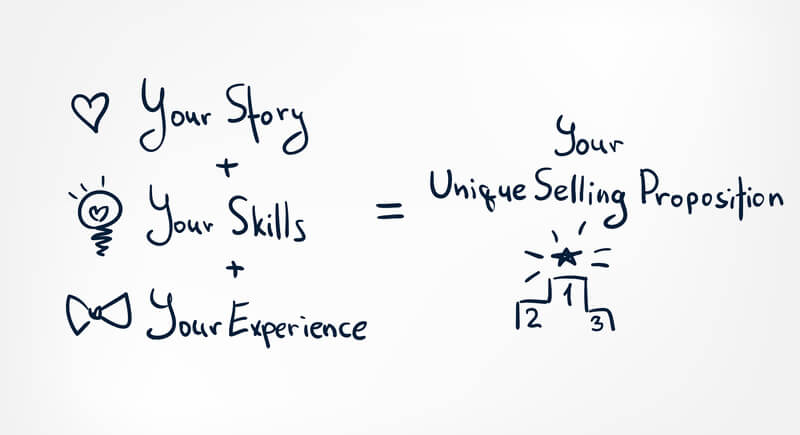 Your Story
+
Your Skills
+
Your Experience
=
Your
Unique Selling Proposition
1
2
3